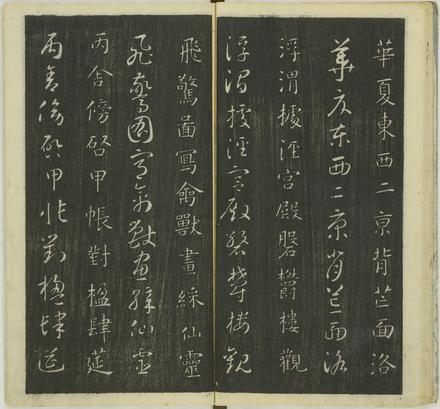 華夏東西二京背芒面洛
華夏東西二京背芒面洛
浮渭據涇宮殿磐欝樓觀
浮渭據涇宮殿磐欝樓觀
飛驚啚寫禽獸畫綵仙靈
飛驚圖寫禽獸畫綵仙靈
丙舍傍啓甲帳對楹肆莚
丙舍傍啓甲帳對楹肆莚